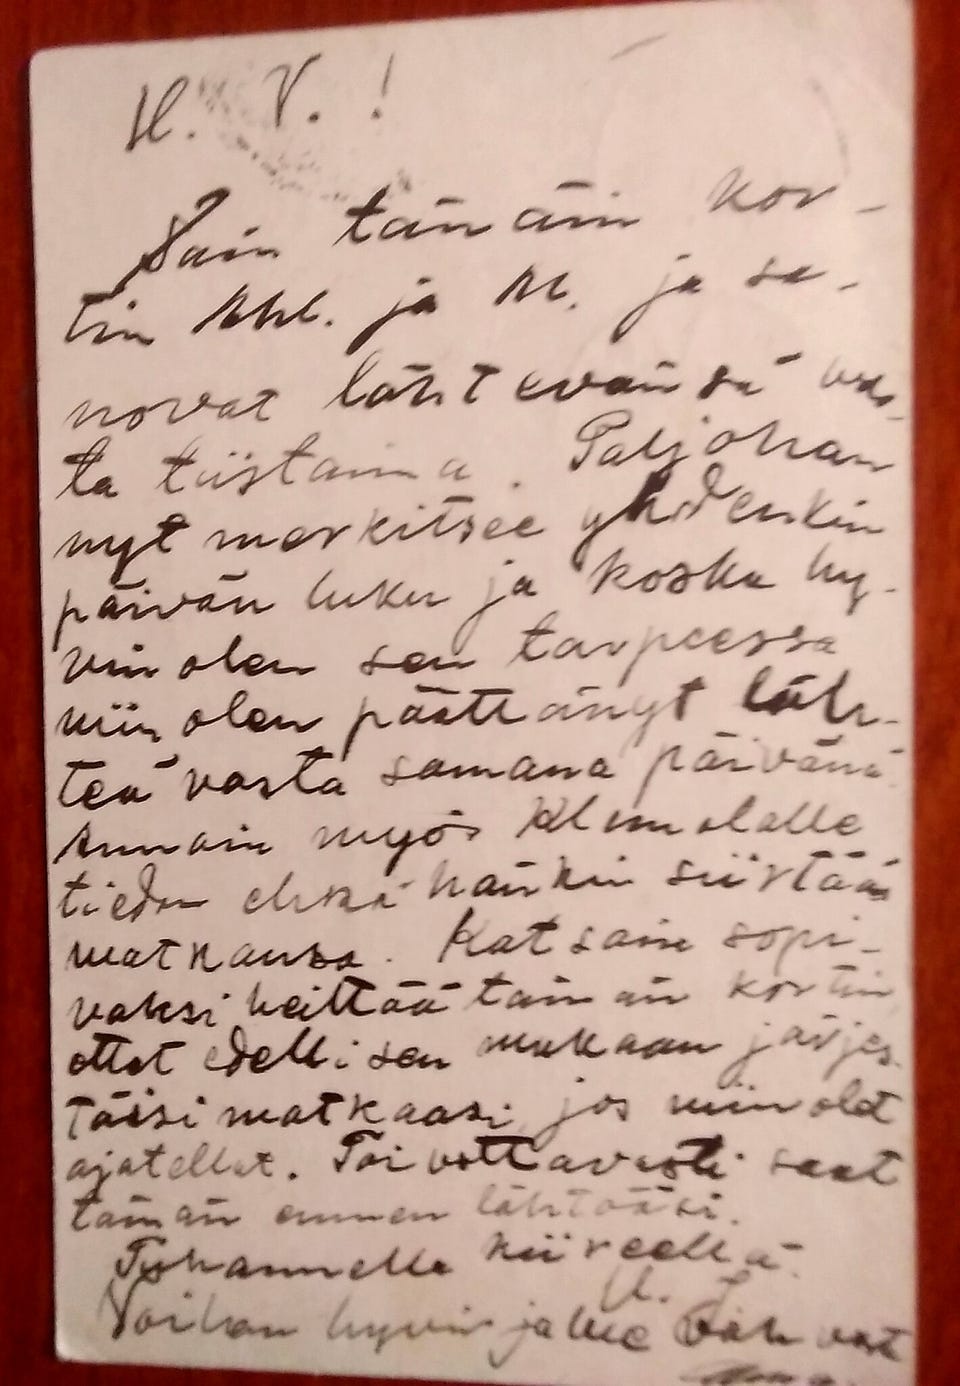 H. V. !
Sain tämän kor-
tin ja M. ja sa-
novat lähtevänsä vas-
ta tiistaina. Paljohan
nyt merkitsee yhdenkin
päivän luku ja koska hy-
vin olen sen tarpeessa
niin olen päättänyt läh-
teä vasta samana päivänä
Annoin myös
tiedon ehkä hänkin siirtää
matkansa. Katsoin sopi-
vaksi heittää tämän kortin
ettet edellisen mukaan järjes-
täisi matkaasi, jos niin olet
ajatellut. Toivottavasti saat
tämän ennen lähtöäsi.
Tuhannella kiireellä.
Voihan hyvin ja